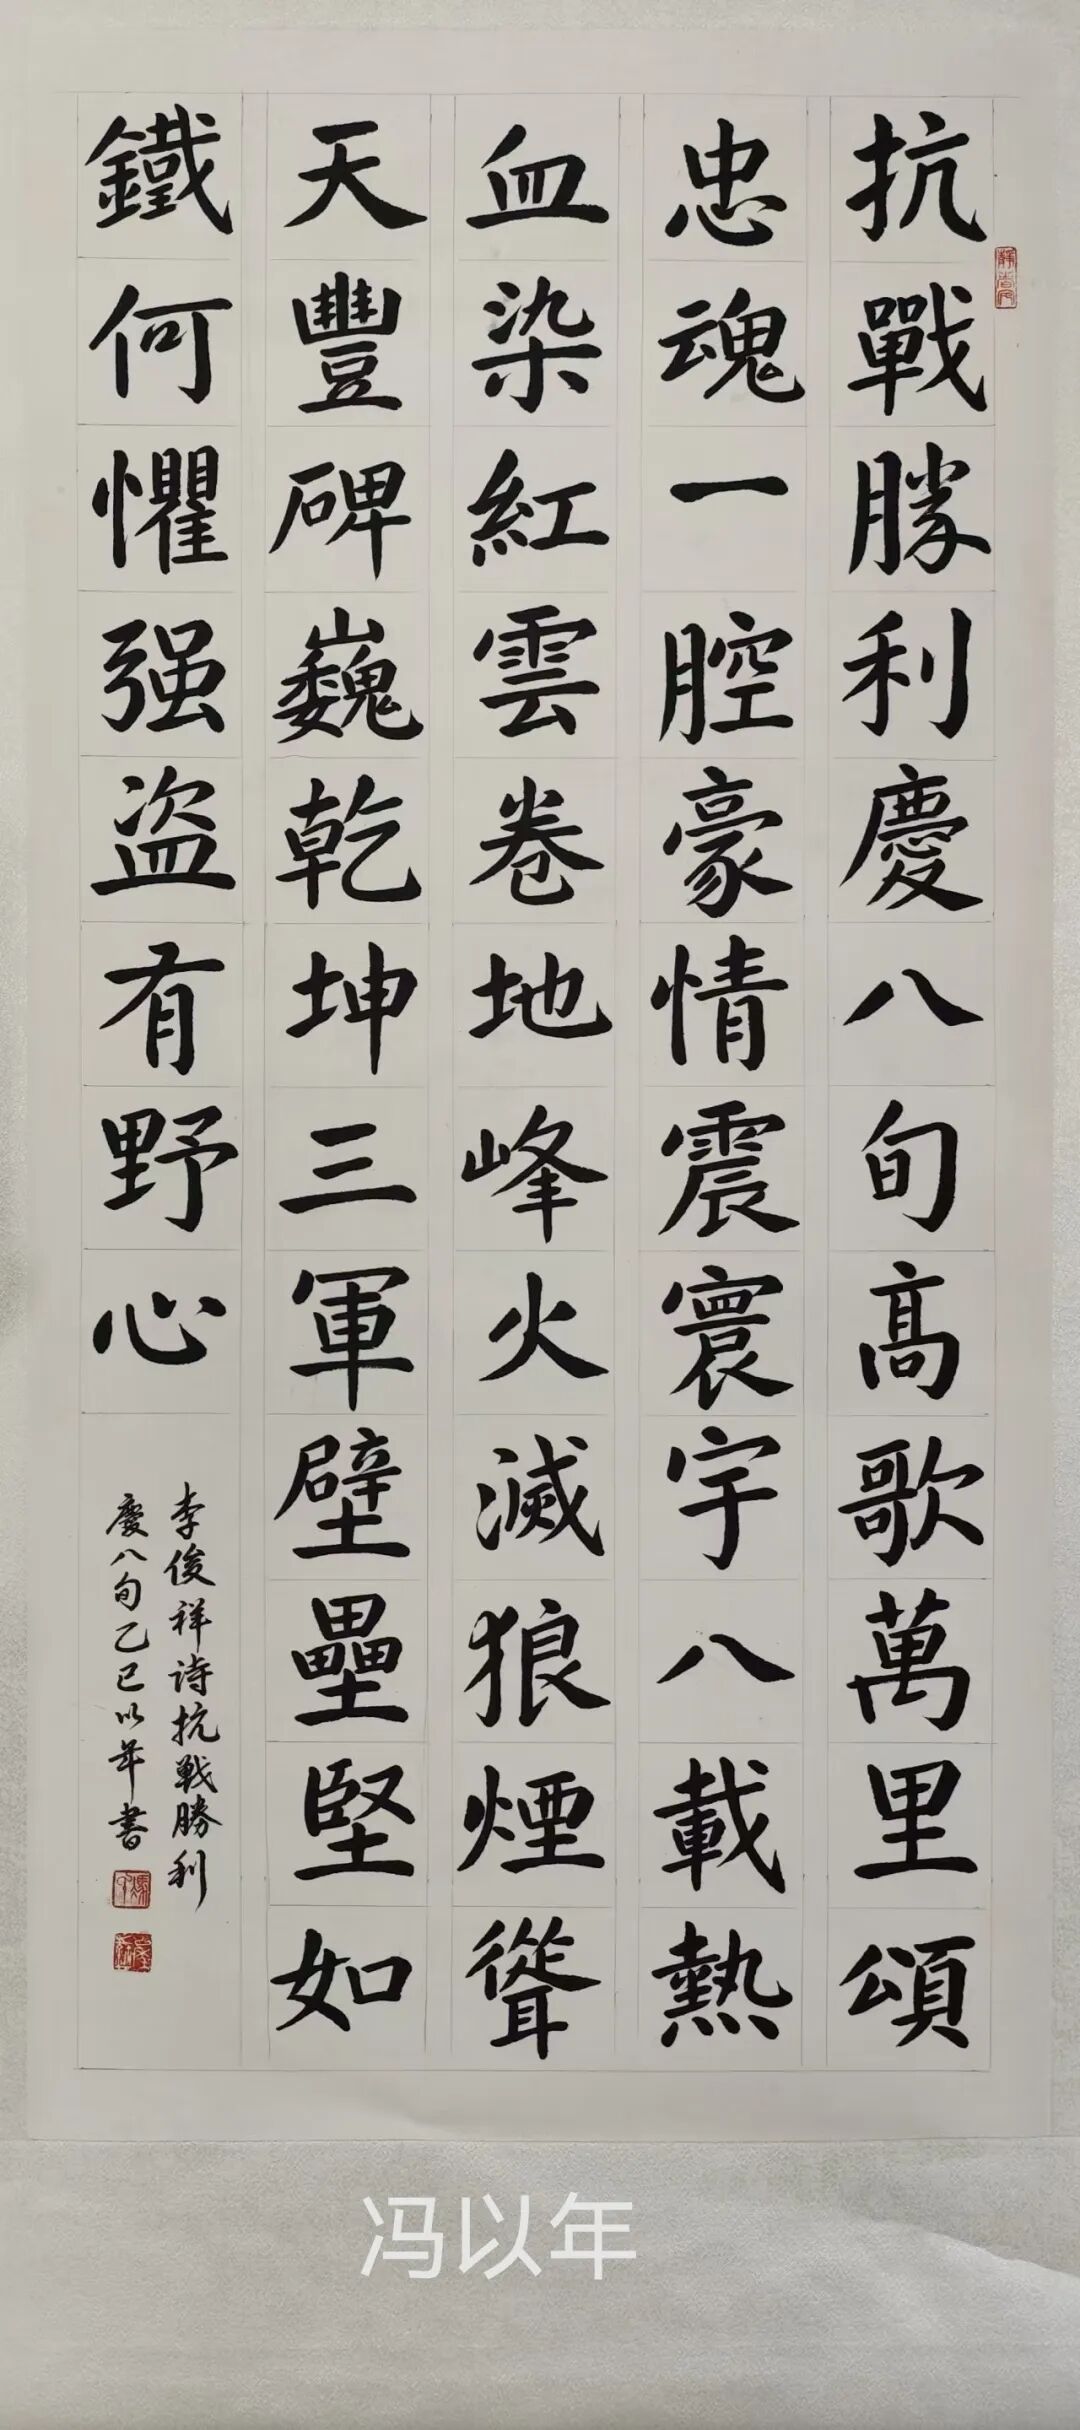 抗戰勝利慶八旬高歌萬里頌
忠魂一腔豪情震寰宇八載熱
血染紅雲卷地峰火滅狼煙聳
天豐碑巍乾坤三軍壁壘堅如
鐵何懼强盗有野心
李俊祥诗抗戰勝利
慶八旬乙巳以年書
冯以年